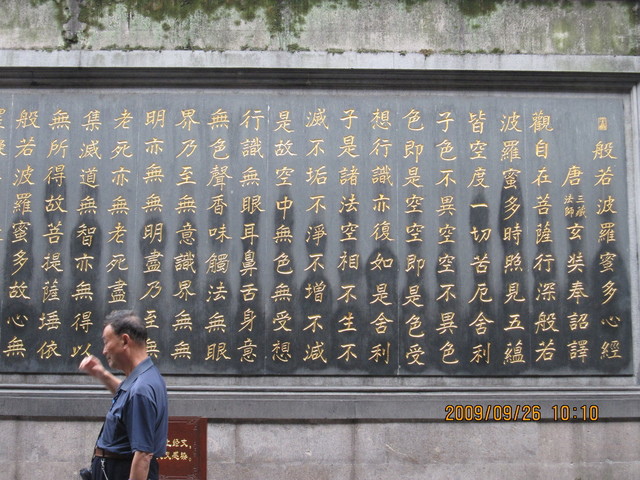 般若波羅蜜多心經
唐三藏法師玄奘奉詔譯
觀自在菩薩行深般若
波羅蜜多時照見五蘊
皆空度一切苦厄舍利
子色不異空空不異色
色即是空空即是色受
想行識亦復如是舍利
子是諸法空相不生不
滅不垢不淨不增不減
是故空中無色無受想
行識無眼耳鼻舌身意
無色聲香味觸法無眼
界乃至無意識界無無
明亦無無明盡乃至無
老死亦無老死盡
集滅道無智亦無得以
無所得故菩提薩埵依
般若波羅蜜多故心無
2009/09/26 10:10